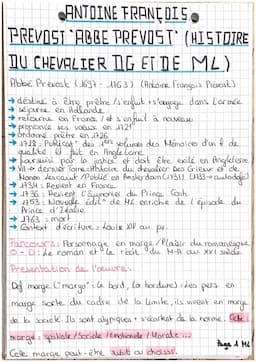 ANTOINE FRANÇOIS
PREVOST "ABBE PREVOST" (HISTOIRE
DU CHEVALIER DG ET DE ML)
Abbé Prévost (1697 - 1763) (Antoine François Prévost)
→ destiné à être prêtre / s'enfuit → s'engage dans l'armée
→ séjourne en Hollande
→ retourne en France / et s'enfuit à nouveau
→ prononce ses voeux en 1721
→ ordonné prêtre en 1726
→ 1728 = Publicat° des 1ers volumes des Mémoires d'un h de
qualité et fuit en Angleterre
→ poursuivi par la justice et doit être exilé en Angleterre
→ VII = dernier Tome: Histoire du chevalier Des Grieux et de
Manon Lescaut / Publié en Amsterdam (1731)
→ 1734 : Revient en France
→ 1736 :
→ 1753 : Nouvelle édit° de ML enrichie de l'épisode du
Prince d'Italie
→ 1763 : mort
→ Context d'écriture : Louis XIV au pv.
Parcours : Personnage en marge / Plaisir du romanesque
O-D : Le roman et le récit du M-A au XXI siècle
Présentation de l'oeuvre :
Def marge (L. margo) : le bord, la bordure) : des pers. en
marge sorte du cadre de la limite, ils vivent en marge
de la société. Ils sont atypiques + s'écartent de la norme. Cette
marge : spatiale / Sociale / Emotionelle / Morale ...
Cette marge peut-être subit ou choisit.
Page 1 ML